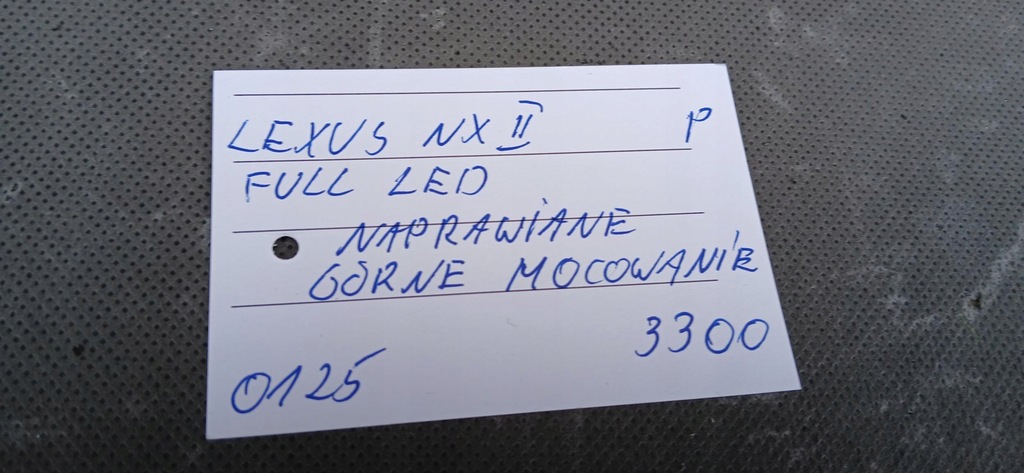 LEXUS NX II P
FULL LED
NAPRAWIANE
GÓRNE MOCOWANIE
3300
0125